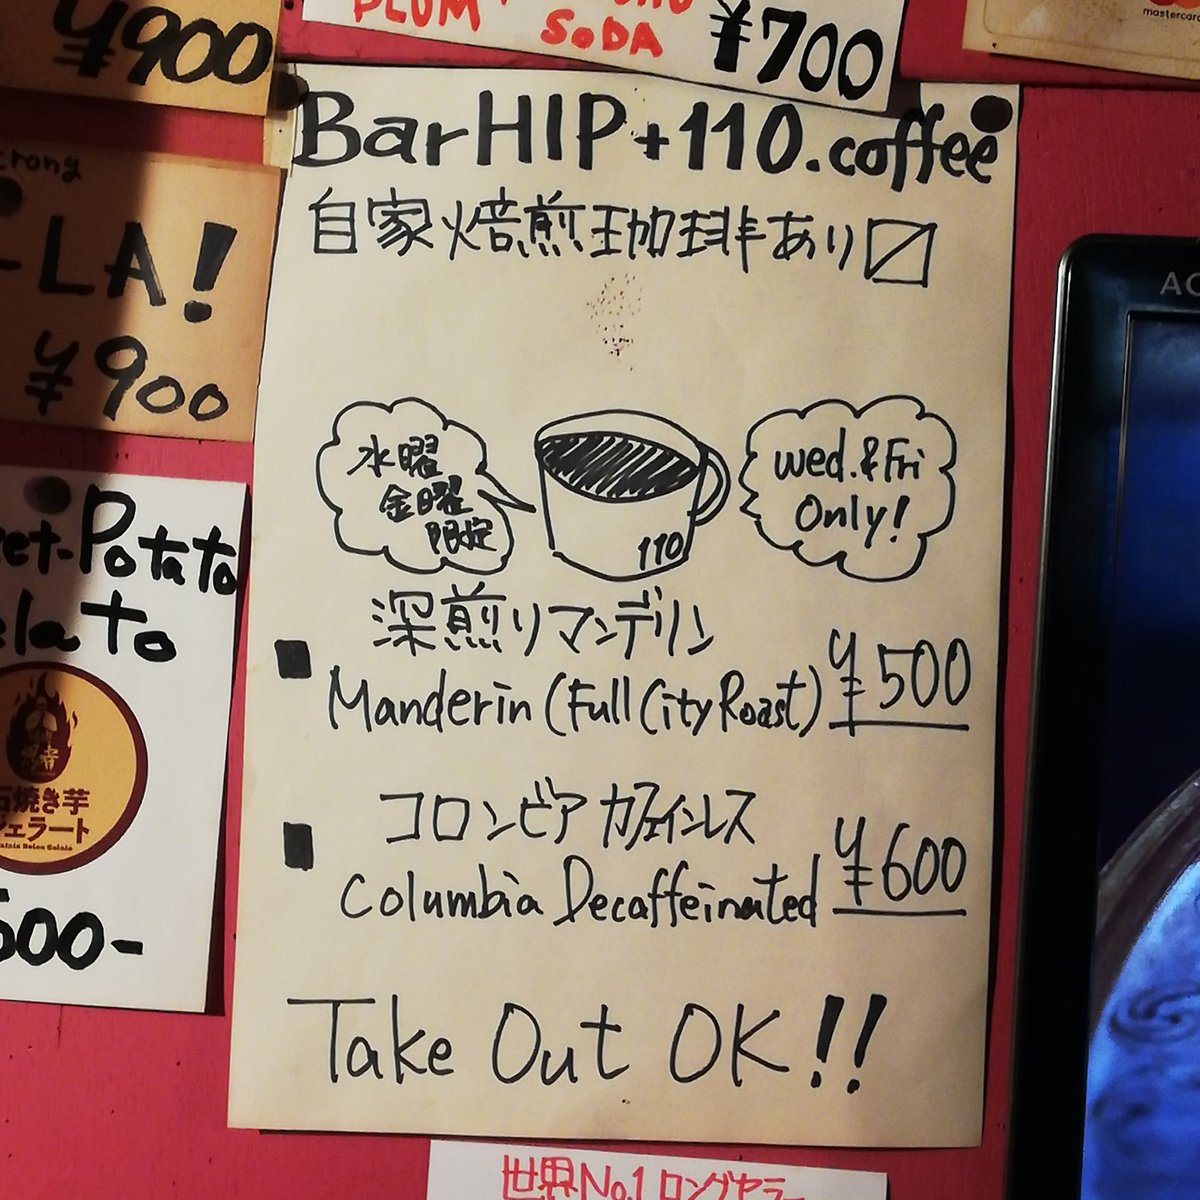 ¥900
PLUM
SODA
¥700
mastercard
LA!
¥900
Potato
500-
石焼き芋
ジェラート
BarHIP+110.coffee
自家焙煎珈琲あり〼
水曜
金曜
限定
110
Wed.&Fri
Only!
深煎りマンデリン
■ Manderin (Full City Roast) ¥500
コロンビア カフェインレス
■ Columbia Decaffeinated ¥600
Take Out OK!!
世界No.1 ロングセラー